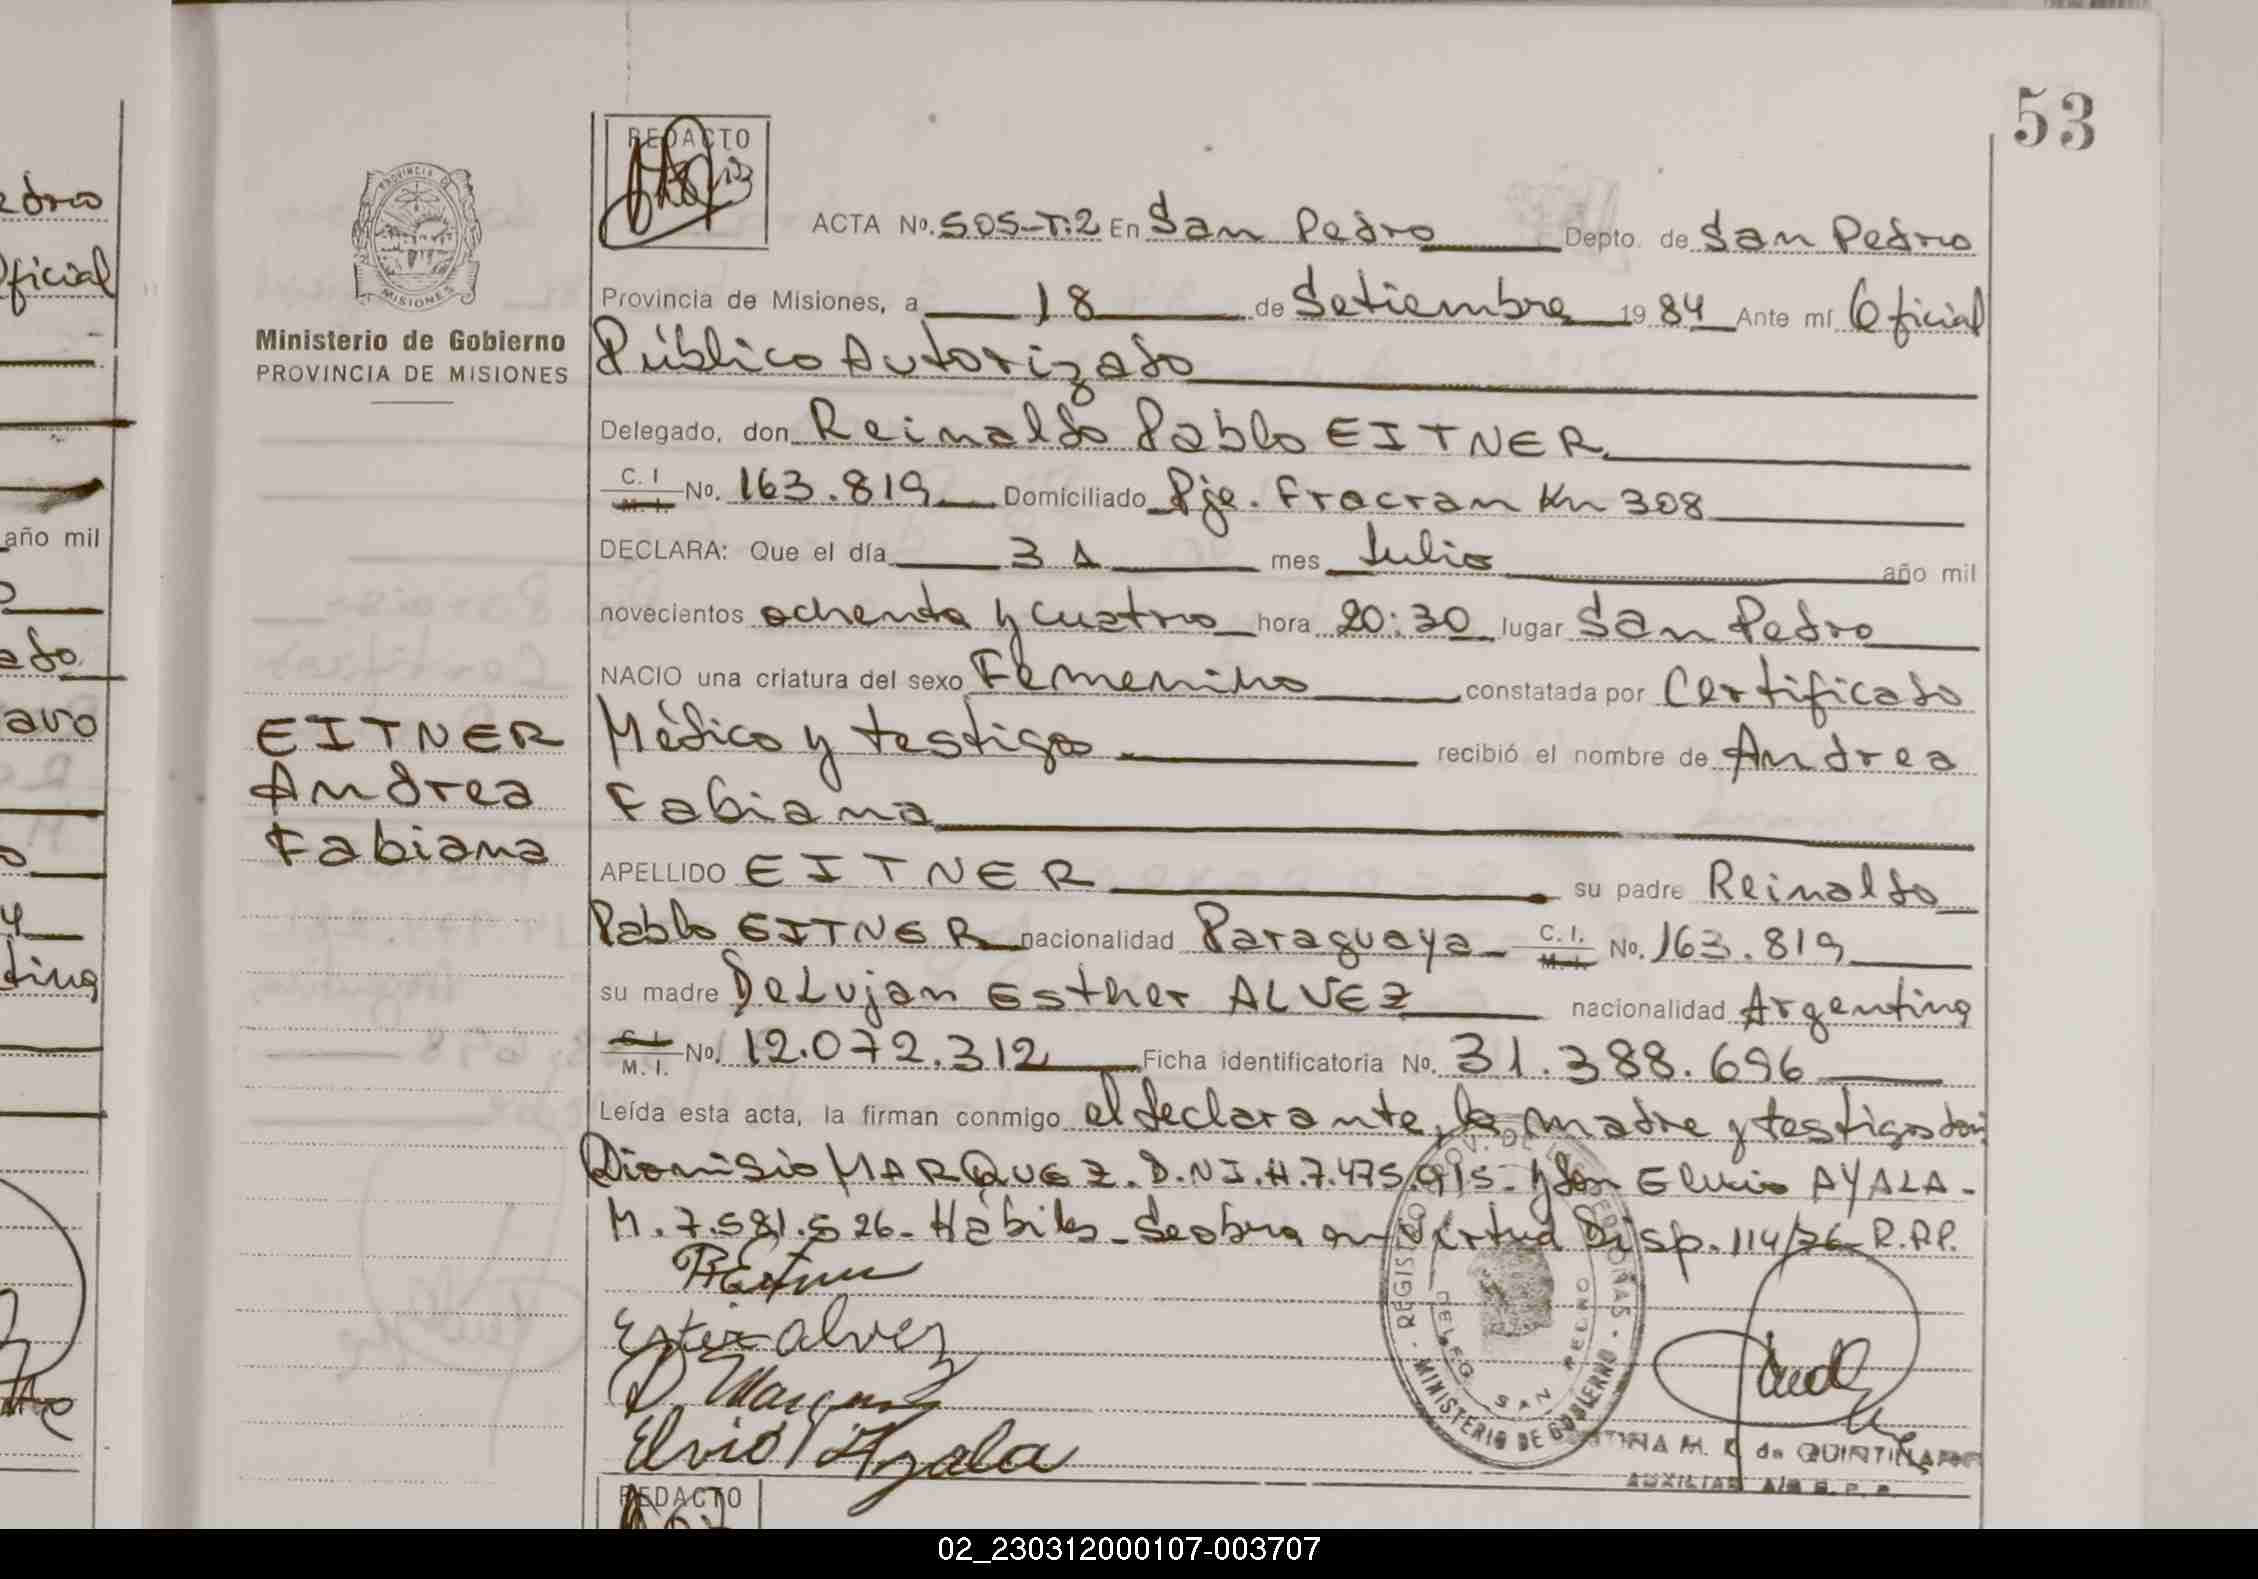 53
REDACTO
PROVINCIA DE
MISIONES
Ministerio de Gobierno
PROVINCIA DE MISIONES
ACTA No. 505-T:2 En San Pedro Depto. de San Pedro
Provincia de Misiones, a 18 de Setiembre 1984 Ante mí Oficial
Público Autorizado
Delegado, don Reinaldo Pablo EITNER
C. I M. I. No. 163.819 Domiciliado Pje. Fracran Km 308
DECLARA: Que el día 31 mes Julio año mil
novecientos ochenta y cuatro hora 20:30 lugar San Pedro
NACIO una criatura del sexo Femenino constatada por Certificado
Médico y testigos recibió el nombre de Andrea
Fabiana
APELLIDO EITNER su padre Reinaldo
Pablo EITNER nacionalidad Paraguaya C. I. M. I. No. 163.819
su madre DeLujan Esther ALVEZ nacionalidad Argentina
C. I M. I. No. 12.072.312 Ficha identificatoria No. 31.388.696
Leída esta acta, la firman conmigo el declarante, la madre y testigos don
Dionisio MARQUEZ. D.NI.M.7.475.915- y don Elvio AYALA-
M.7.581.526- Hábiles- Se obra en virtud Disp. 114/76- R.P.P.
EITNER
Andrea
Fabiana
Ester alvez
D. Marquez
Elvio Ayala
REGISTRO PROV. DE PERSONAS - MINISTERIO DE GOBIERNO
DELEG SAN PEDRO
M. E de QUINTILLAN
AUXILIAR A/C R. P. P.
REDACTO
edro
Oficial
año mil
ado
avo
y
tina
02_230312000107-003707